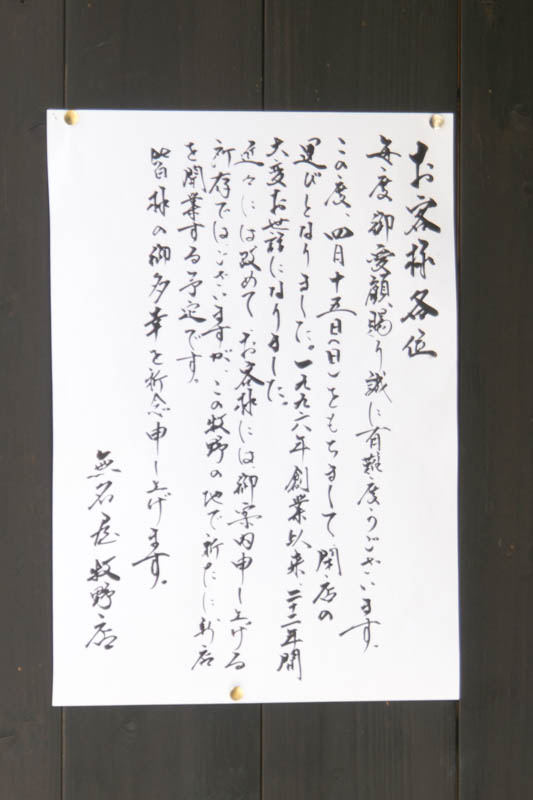 お客様各位
毎度御愛顧賜り誠に有難度うございます。
この度、四月十五日(日)をもちまして閉店の
運びとなりました。一九九六年創業以来、二十二年間
大変お世話になりました。
近々には改めてお客様には、御案内申し上げる
所存ではございますが、この牧野の地で新たに新店
を開業する予定です。
皆様の御多幸を祈念申し上げます。
無名屋牧野店